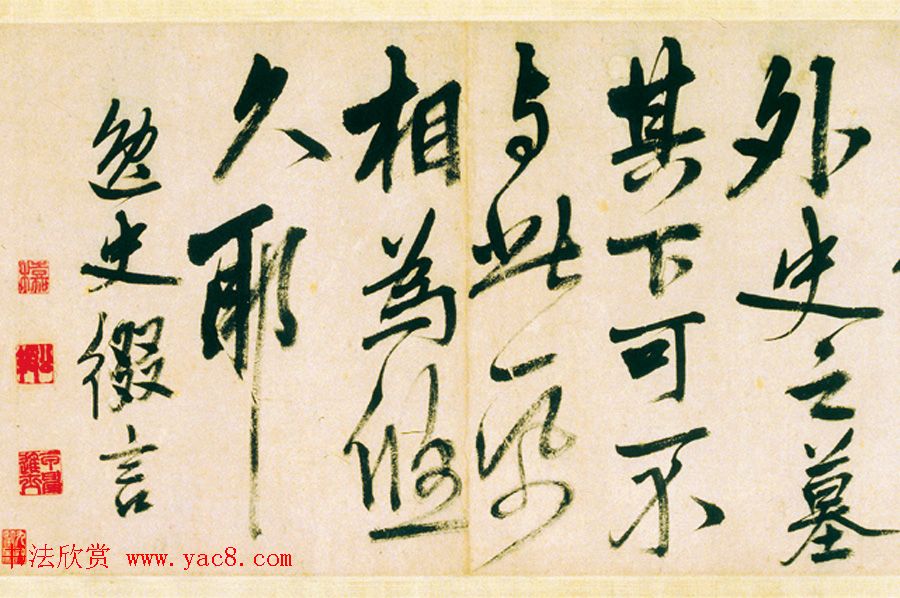 外史之墓
其下可不
与此一
相為悠
久耶
逸史言
书法欣赏 www.yac8.com